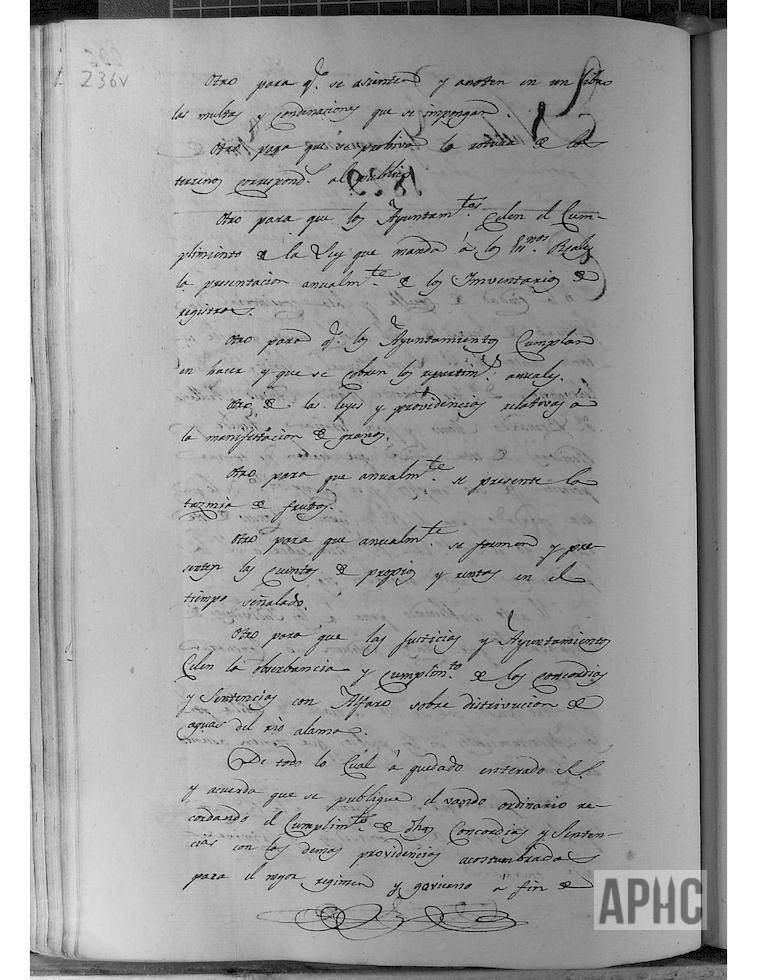 236v
Otro para q.e se asienten y anoten en un libro
las multas y condenaciones que se impongan.
Otro para que se prohiva la rotura de los
terrenos correspond.s al publico.
Otro para que los Ayuntam.tos celen el Cum-
plimiento de la Ley que manda á los Es.nos Reales
la presentacion anualm.te de los Imventarios de
registros.
Otro para q.e los Ayuntamientos Cumplan
en hacer y que se cobren los repartim.s anuales.
Otro de las leyes y providencias relativas á
la manifestacion de granos.
Otro para que anualm.te se presente la
tazmia de frutos.
Otro para que anualm.te se formen y pre-
senten las cuentas de propios y rentas en el
tiempo señalado.
Otro para que las Justicias y Ayuntamientos
Celen la obserbancia y cumplim.to de las concordias
y Sentencias con Alfaro sobre distrivucion de
aguas del rio alama.
De todo lo Cual á quedado enterado S.S.
y acuerda que se publique el vando ordinario re-
cordando el Cumplim.to de dhas Concordias y Senten-
cias con las demas providencias acostumbradas
para el mejor regimen y govierno á fin de
APHC